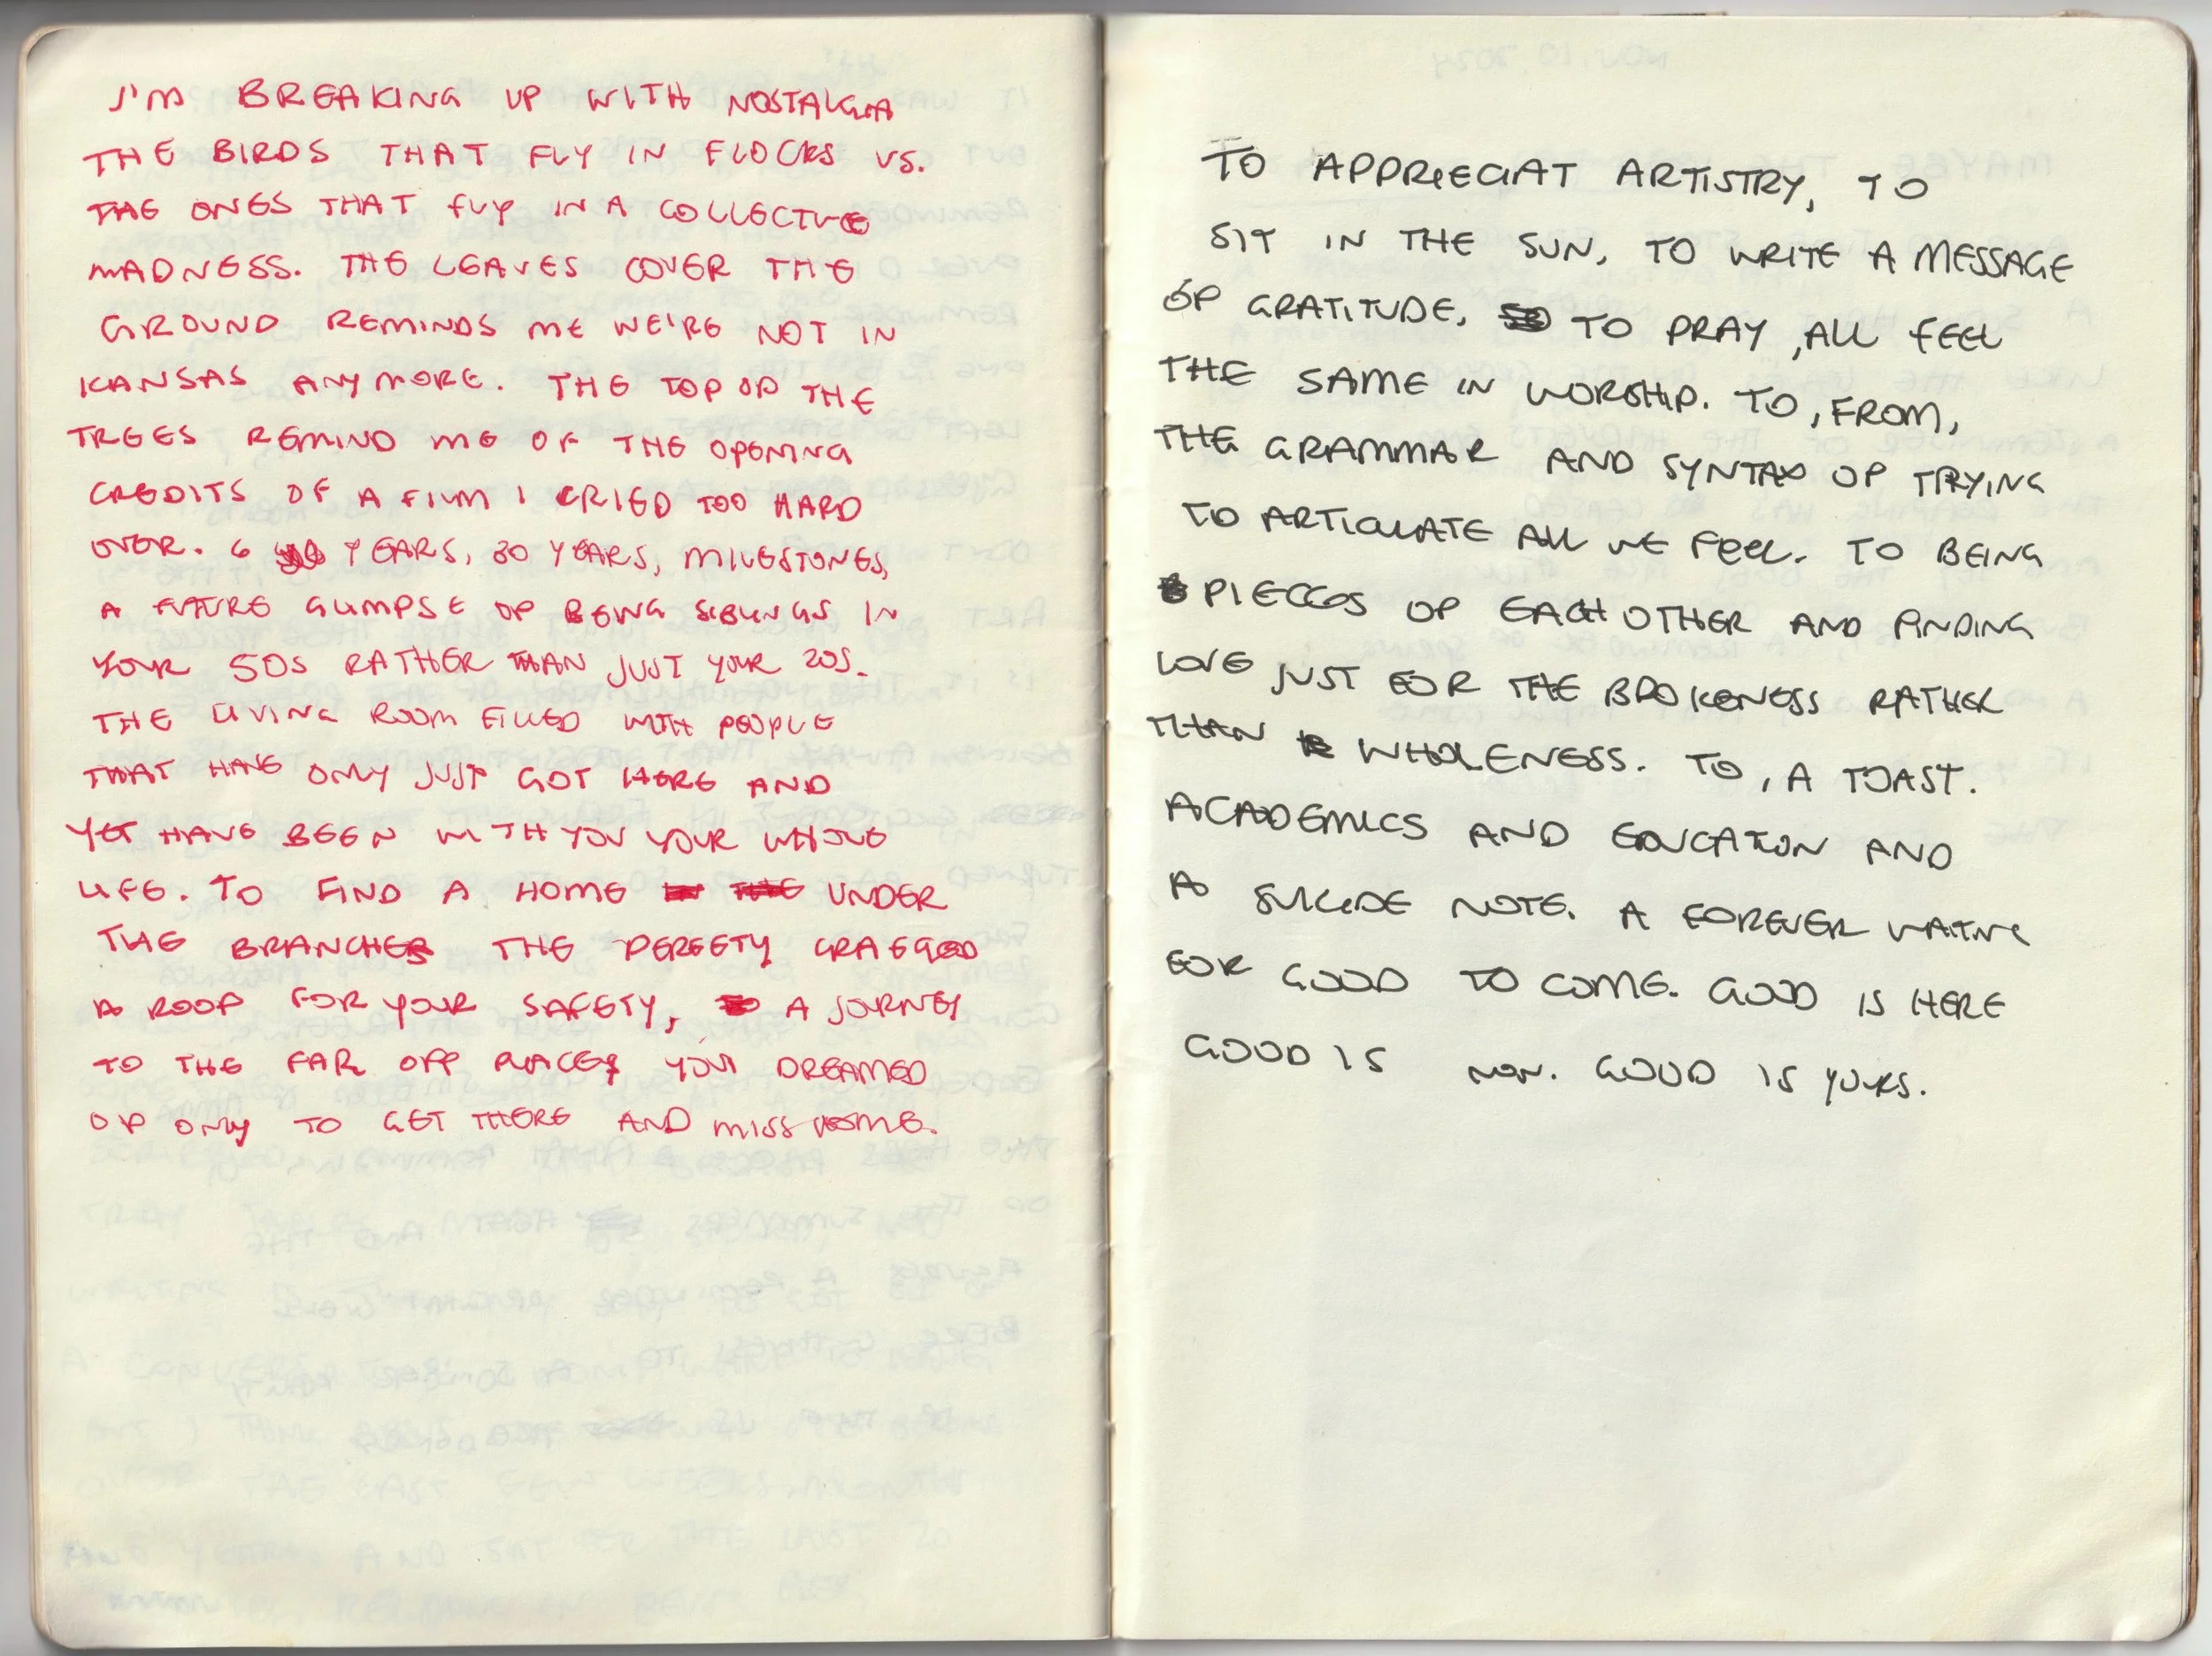 I'M BREAKING UP WITH NOSTALGIA
THE BIRDS THAT FLY IN FLOCKS VS.
THE ONES THAT FLY IN A COLLECTIVE
MADNESS. THE LEAVES COVER THE
GROUND REMINDS ME WE'RE NOT IN
KANSAS ANYMORE. THE TOP OF THE
TREES REMIND ME OF THE OPENING
CREDITS OF A FILM I CRIED TOO HARD
OVER. 6 YEARS, 30 YEARS, MILESTONES,
A FUTURE GLIMPSE OF BEING SIBLINGS IN
YOUR 50S RATHER THAN JUST YOUR 20S.
THE LIVING ROOM FILLED WITH PEOPLE
THAT HAVE ONLY JUST GOT HERE AND
YET HAVE BEEN WITH YOU YOUR WHOLE
LIFE. TO FIND A HOME UNDER
THE BRANCHES THE
A ROOF FOR YOUR SAFETY, A JOURNEY
TO THE FAR OFF PLACES YOU DREAMED
OF ONLY TO GET THERE AND MISS HOME.
TO APPRECIAT ARTISTRY, TO
SIT IN THE SUN, TO WRITE A MESSAGE
OF GRATITUDE, TO PRAY, ALL FEEL
THE SAME IN WORSHIP. TO, FROM,
THE GRAMMAR AND SYNTAX OF TRYING
TO ARTICULATE ALL WE FEEL. TO BEING
PIECCES OF EACHOTHER AND FINDING
LOVE JUST FOR THE BROKENESS RATHER
THAN WHOLENESS. TO, A TOAST.
ACADEMICS AND EDUCATION AND
A SUICIDE NOTE. A FOREVER WAITING
FOR GOOD TO COME. GOOD IS HERE
GOOD IS NOW. GOOD IS YOURS.